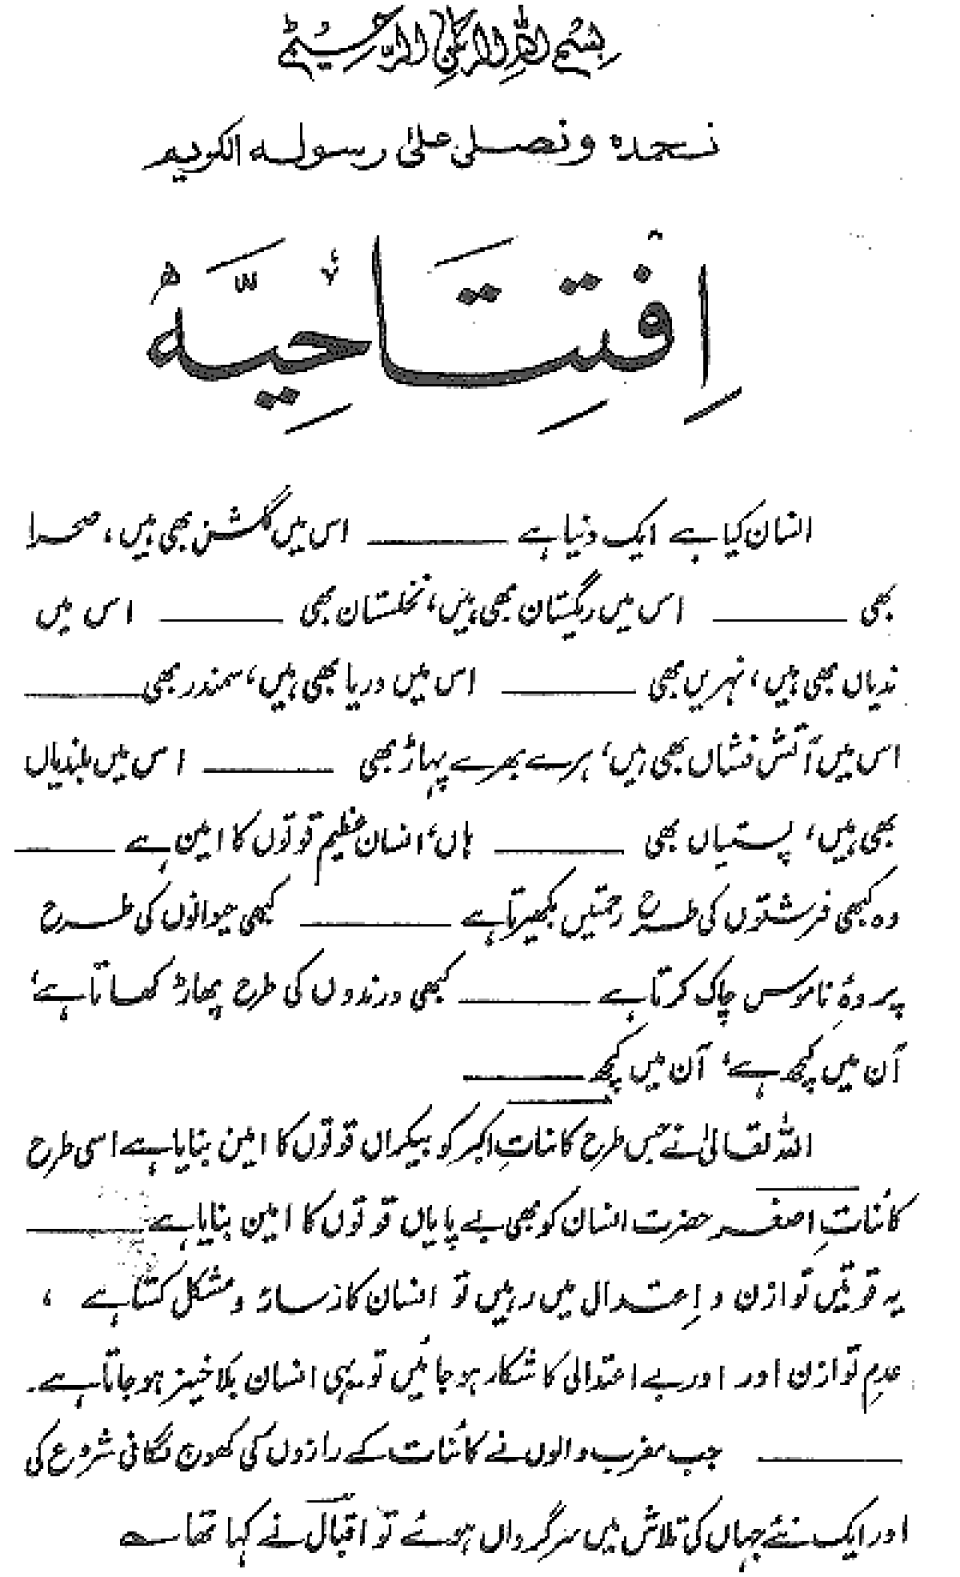 بسم الله الرحمن الرحيم
نحمده ونصلى على رسوله الكريم
اِفتِتَاحِیَّہ
انسان کیا ہے ایک دنیا ہے ——— اس میں گلشن بھی ہیں، صحرا
بھی ——— اس میں ریگستان بھی ہیں، نخلستان بھی ——— اس میں
ندیاں بھی ہیں، نہریں بھی ——— اس میں دریا بھی ہیں، سمندر بھی ———
اس میں آتش فشاں بھی ہیں، ہرے بھرے پہاڑ بھی ——— اس میں بلندیاں
بھی ہیں، پستیاں بھی ——— ہاں، انسان عظیم قوتوں کا امین ہے ———
وہ کبھی فرشتوں کی طرح رحمتیں بکھیرتا ہے ——— کبھی حیوانوں کی طرح
پردۂ ناموس چاک کرتا ہے ——— کبھی درندوں کی طرح پھاڑ کھاتا ہے،
آن میں کچھ ہے، آن میں کچھ ———
اللہ تعالیٰ نے جس طرح کائناتِ اکبر کو بیکراں قوتوں کا امین بنایا ہے اسی طرح
کائناتِ اصغر حضرت انسان کو بھی بے پایاں قوتوں کا امین بنایا ہے ———
یہ قوتیں توازن و اِعتدال میں رہیں تو انسان کارساز و مشکل کشا ہے ،
عدمِ توازن اور اور بے اعتدالی کا شکار ہو جائیں تو یہی انسان بلاخیز ہو جاتا ہے۔
——— جب مغرب والوں نے کائنات کے رازوں کی کھوج لگانی شروع کی
اور ایک نئے جہاں کی تلاش میں سرگرداں ہوئے تو اقبال نے کہا تھا ؎